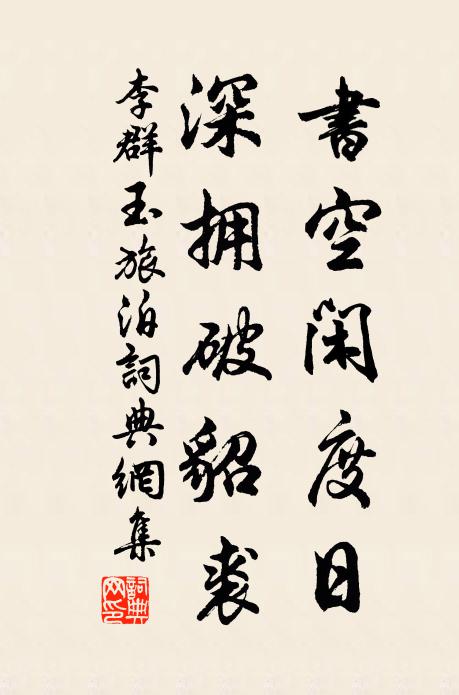 書空閑度日
深拥破貂裘
李群玉旅泊詞典網集
詞典网印